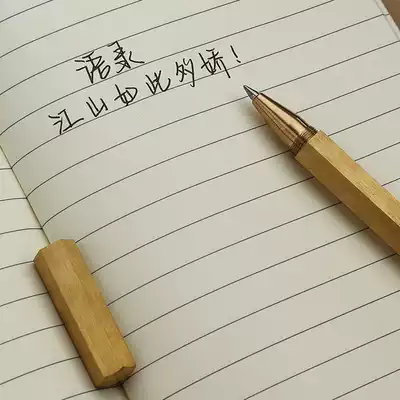 语录
江山如此多娇!